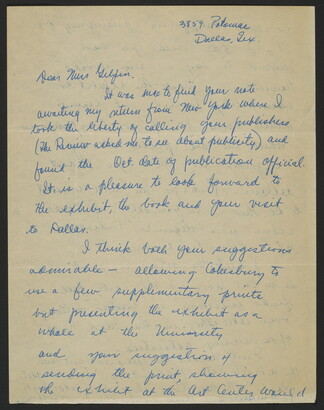 3859 Potomac
Dallas, Tex.
Dear Miss Gilpin.
It was nice to find your note
awaiting my return from New York where I
took the liberty of calling your publishers
(The Review asked me to see about publicity) and
found the Oct. date of publication official.
It is a pleasure to look forward to
the exhibit, the book and your visit
to Dallas.
I think both your suggestions
admirable — allowing Cokesbury to
use a few supplimentary prints
but presenting the exhibit as a
whole at the University
and your suggestion of
sending the print, showing
the exhibit at the Art Center would